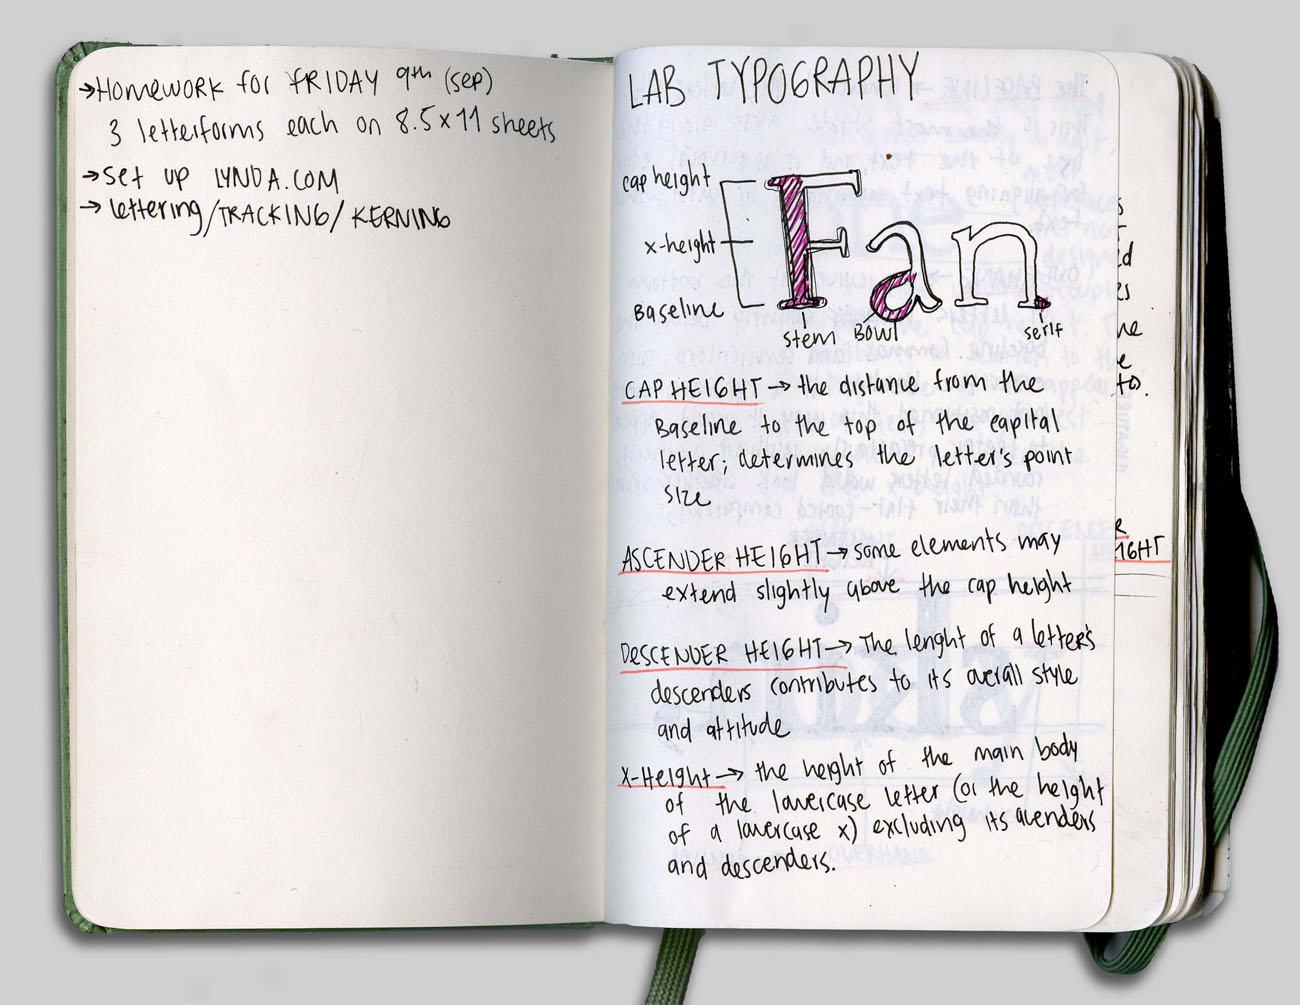 →Homework for FRIDAY 9th (sep)
3 letterforms each on 8.5x11 sheets
→Set up LYNDA.COM
→ lettering/TRACKING/KERNING
LAB TYPOGRAPHY
cap height
x-height
Baseline
Fan
stem
Bowl
serif
CAP HEIGHT → the distance from the
Baseline to the top of the capital
letter; determines the letter's point
size
ASCENDER HEIGHT → some elements may
extend slightly above the cap height
DESCENDER HEIGHT → The lenght of a letter's
descenders contributes to its overall style
and attitude
X-Height → the height of the main body
of the lowercase letter (or the height
of a lowercase x) excluding its
and descenders.